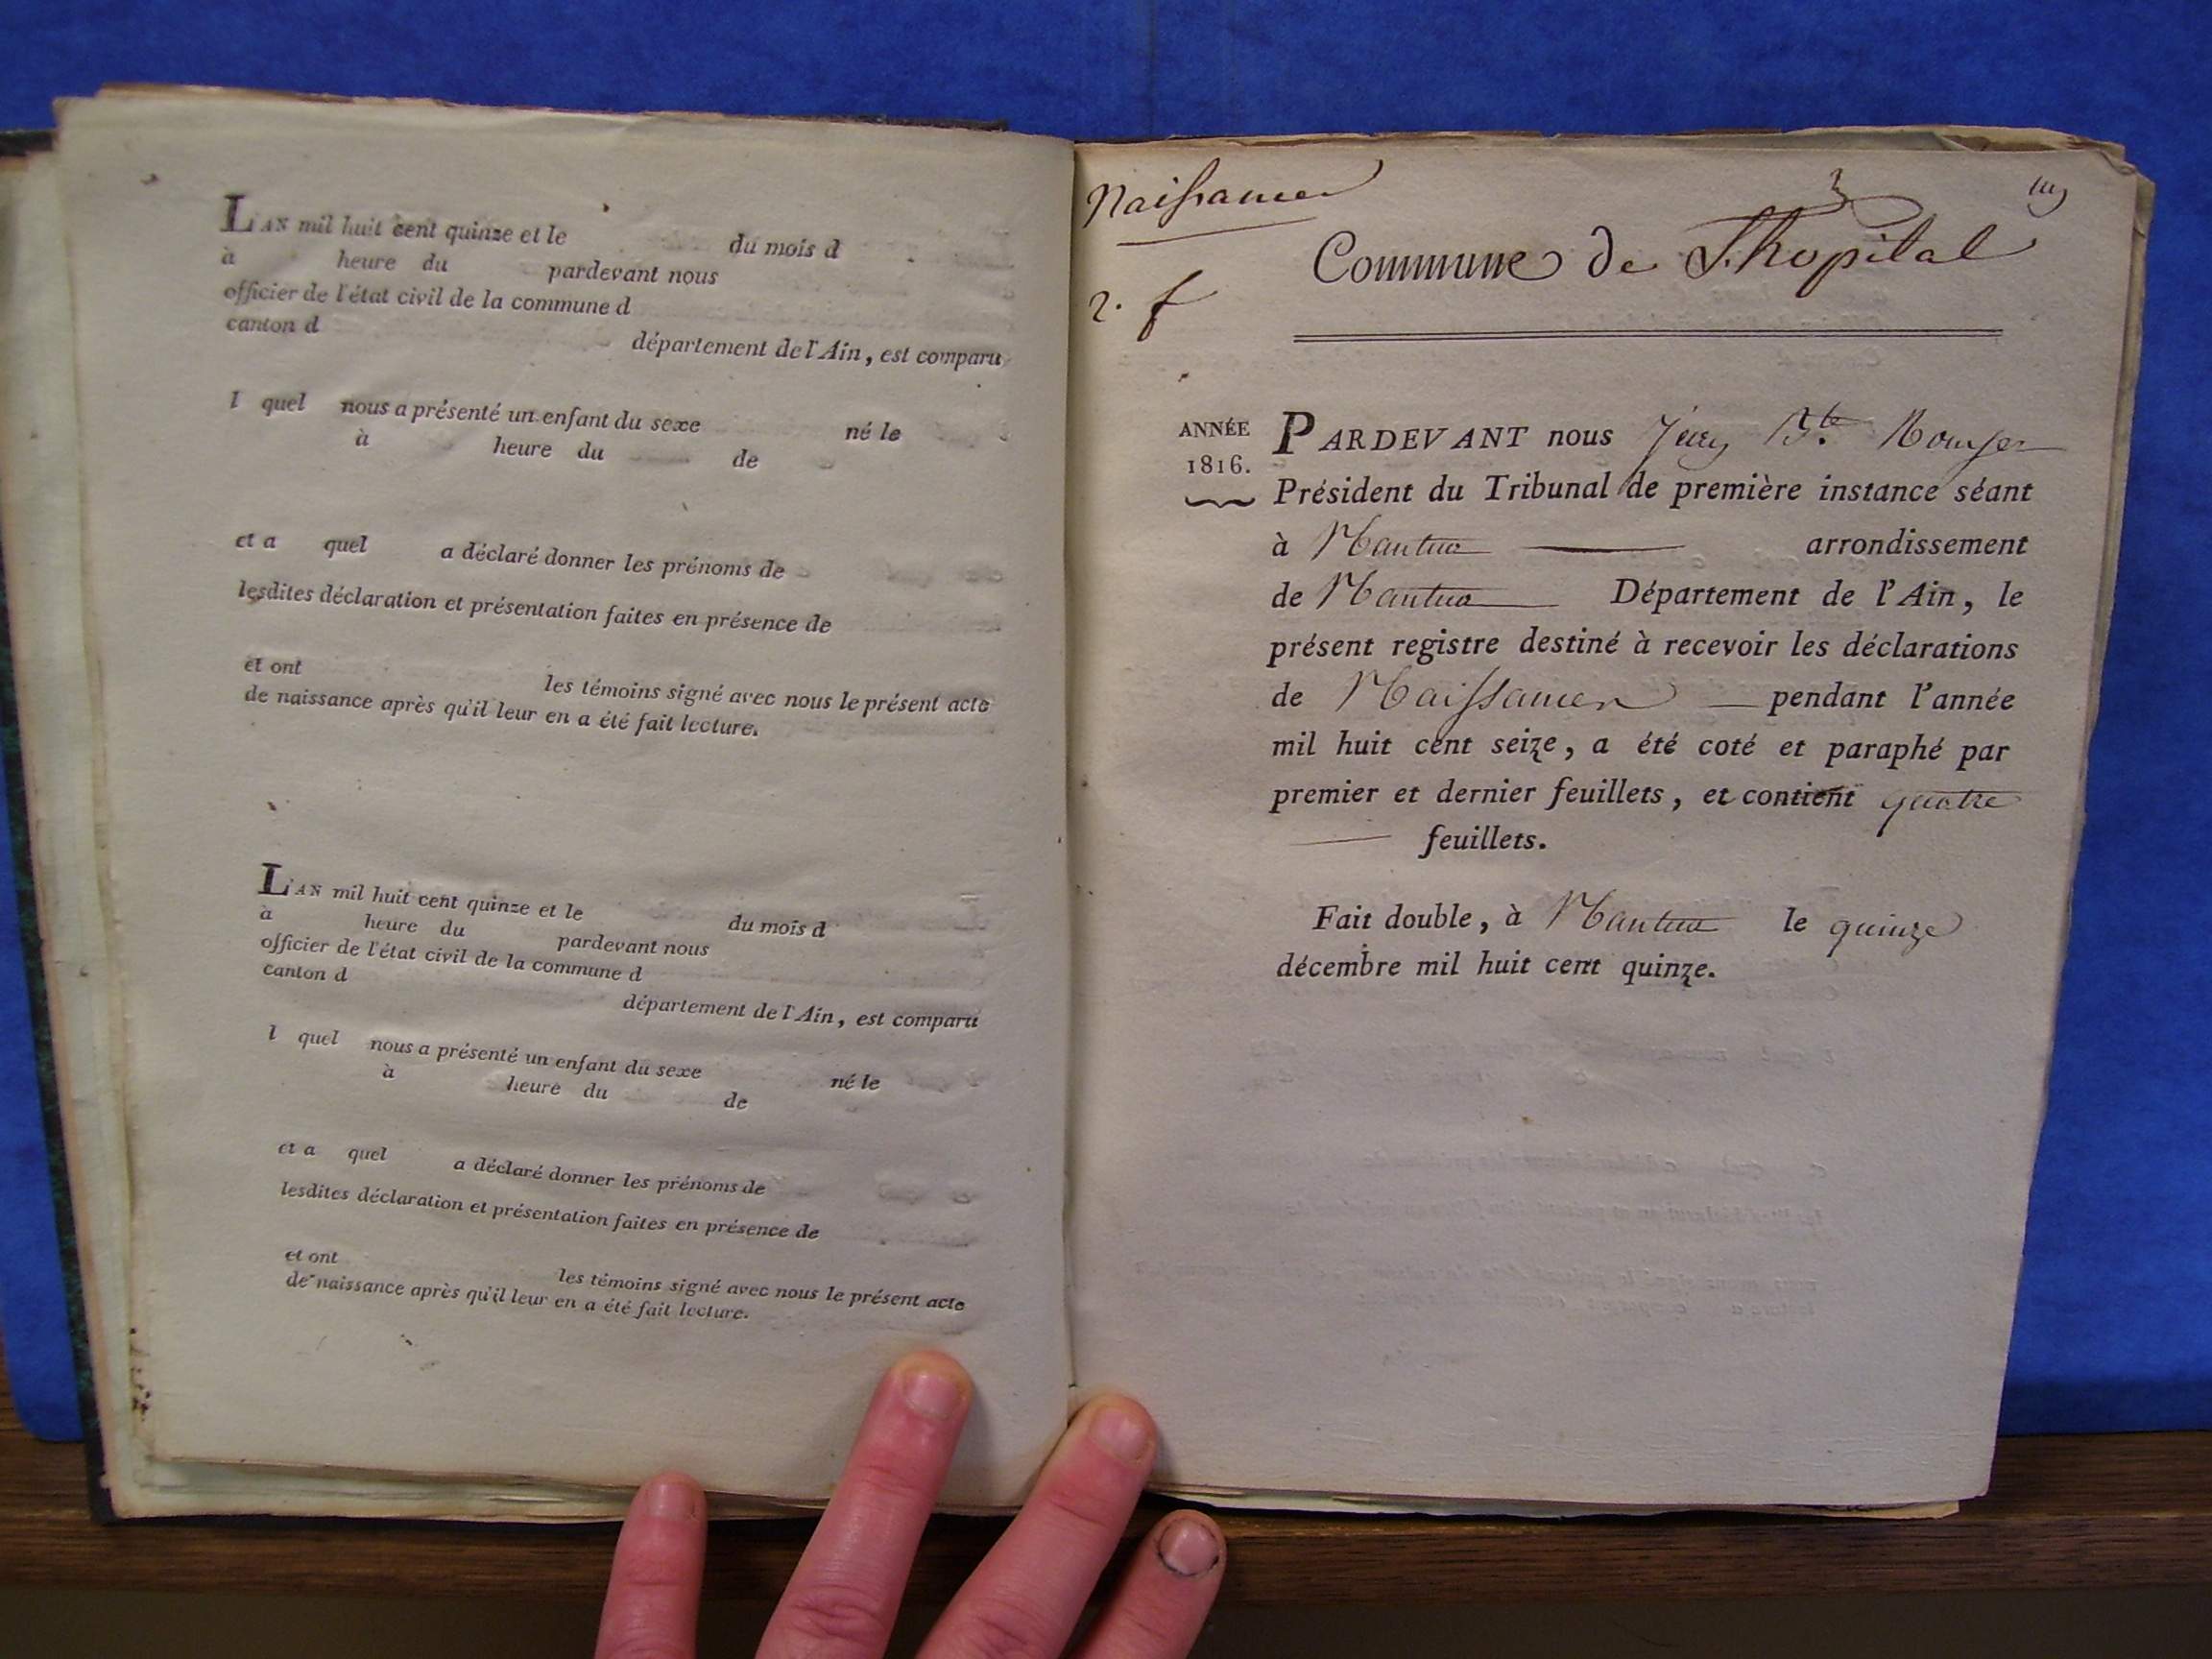 L'AN mil huit cent quinze et le du mois d
à heure du pardevant nous
officier de l'état civil de la commune d
canton d département de l'Ain, est comparu
l quel nous a présenté un enfant du sexe né le
à heure du de
et a quel a déclaré donner les prénoms de
lesdites déclaration et présentation faites en présence de
et ont les témoins signé avec nous le présent acte
de naissance après qu'il leur en a été fait lecture.
L'AN mil huit cent quinze et le du mois d
à heure du pardevant nous
officier de l'état civil de la commune d
canton d département de l'Ain, est comparu
l quel nous a présenté un enfant du sexe né le
à heure du de
et a quel a déclaré donner les prénoms de
lesdites déclaration et présentation faites en présence de
et ont les témoins signé avec nous le présent acte
de naissance après qu'il leur en a été fait lecture.
Naissances
3
Commune de Lhopital
2. f
ANNÉE
1816.
PARDEVANT nous Jean Bte.
Président du Tribunal de première instance séant
à Nantua arrondissement
de Nantua Département de l'Ain, le
présent registre destiné à recevoir les déclarations
de Naissances pendant l'année
mil huit cent seize, a été coté et paraphé par
premier et dernier feuillets, et contient quatre
feuillets.
Fait double, à Nantua le quinze
décembre mil huit cent quinze.